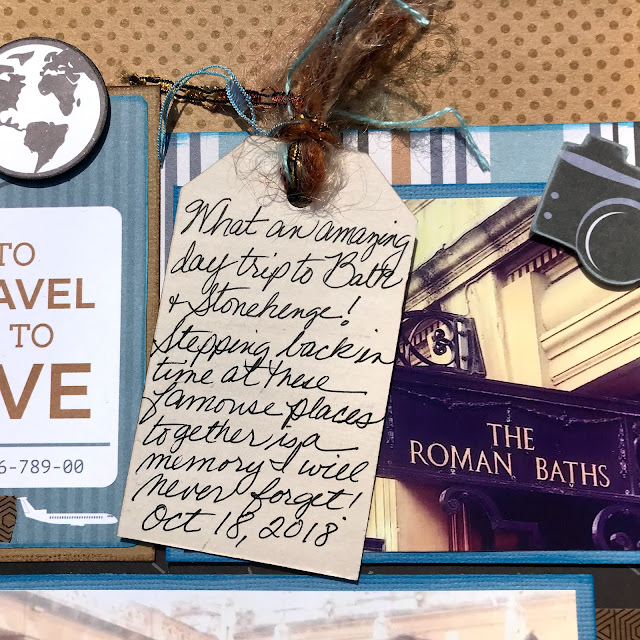 TO
AVEL
TO
VE
6-789-00
What an amazing
day trip to Bath
& Stonehenge!
Stepping back in
time at these
famouse places
together is a
memory I will
never forget!
Oct 18, 2018
THE
ROMAN BATHS